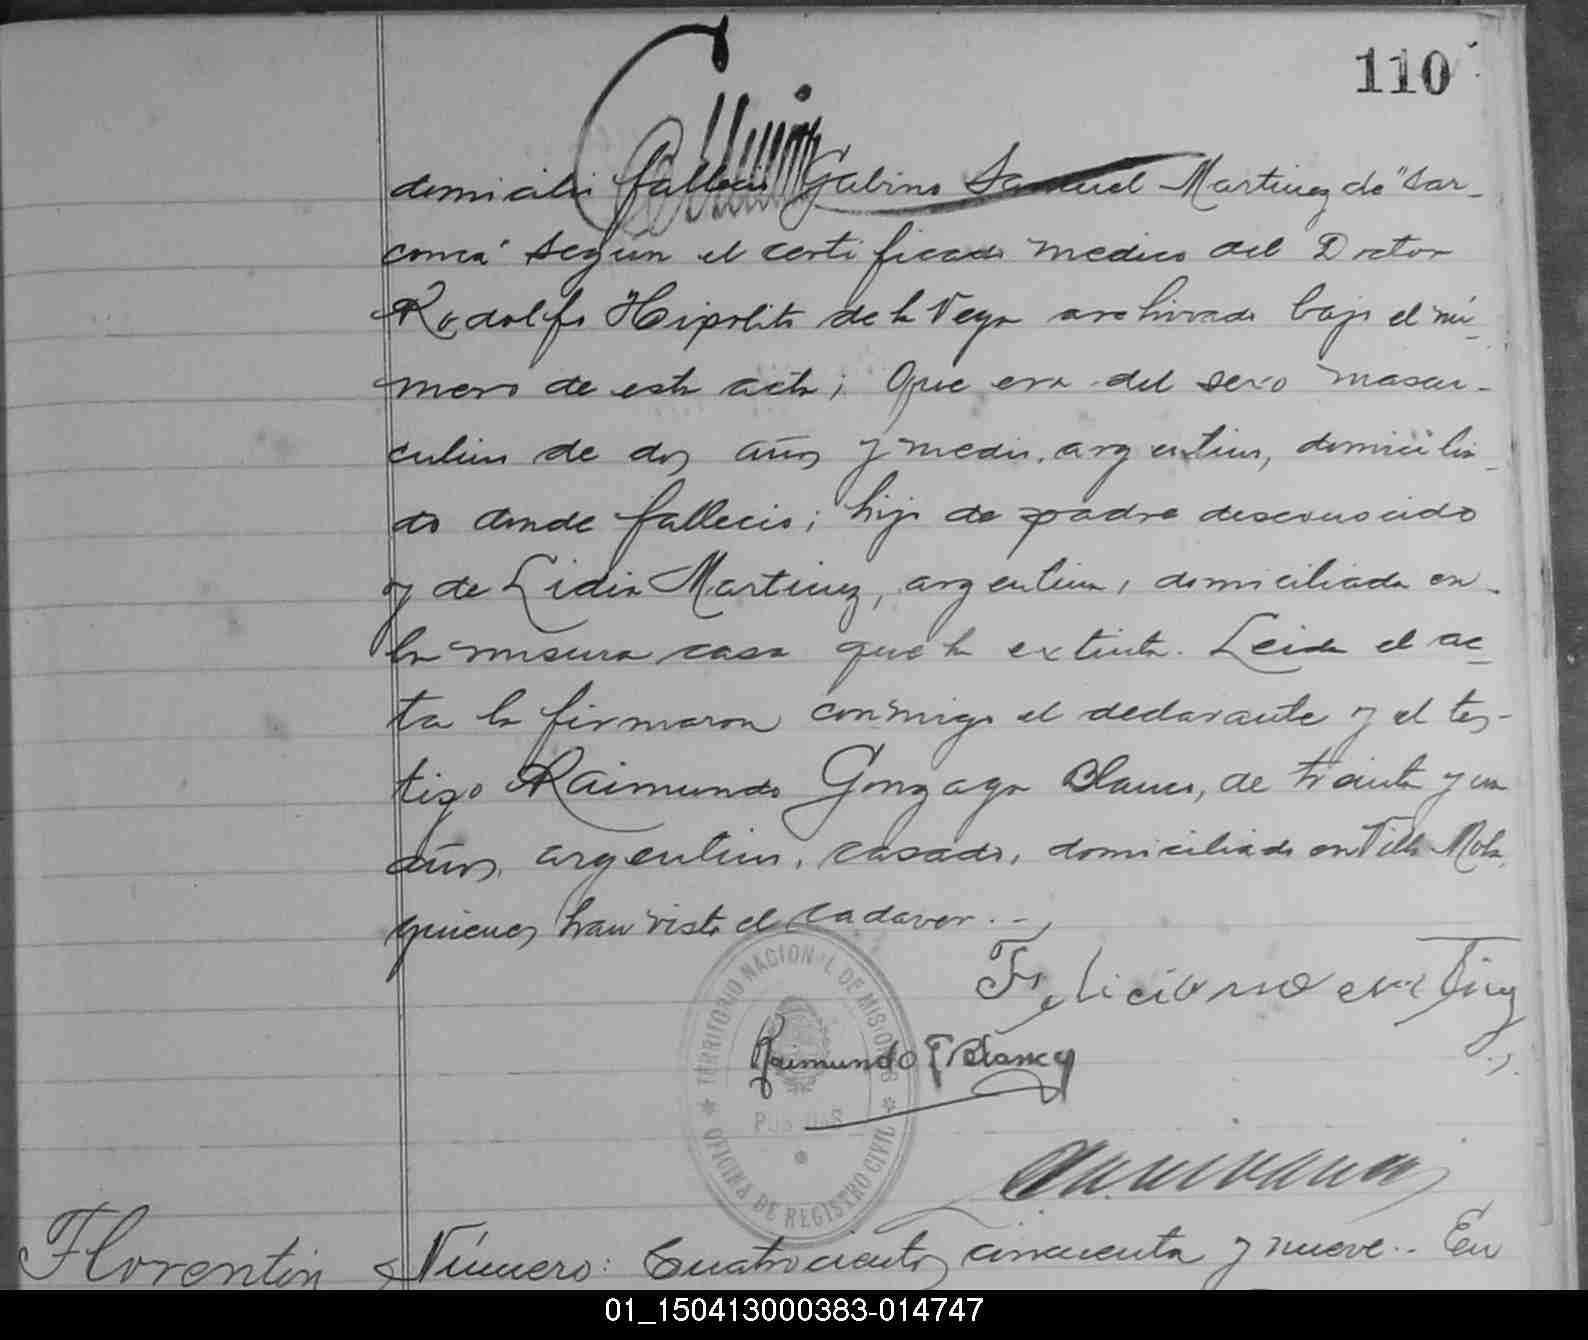 110
domicilio fallecio Gabino Samuel Martinez de "Sar-
coma" segun el certificado medico del Doctor
Rodolfo Hipolito de la Vega archivado bajo el nú-
mero de esta acta; Que era del sexo mascu-
culino de dos años y medio, argentino, domicilia-
do donde fallecio; hijo de padre desconocido
y de Lidia Martinez, argentina, domiciliada en
la misma casa que la extinta. Leida el ac-
ta la firmaron conmigo el declarante y el tes-
tigo Raimundo Gonzaga Blanco, de treinta y un
años, argentino, casado, domiciliado en Villa Mola,
quienes han visto el cadaver.-
Feliciano
Raimundo G Blanco
TERRITORIO NACIONAL DE MISIONES
POSADAS
OFICINA DE REGISTRO CIVIL
Florentin
Número: Cuatrocientos cincuenta y nueve.. En
01_150413000383-014747